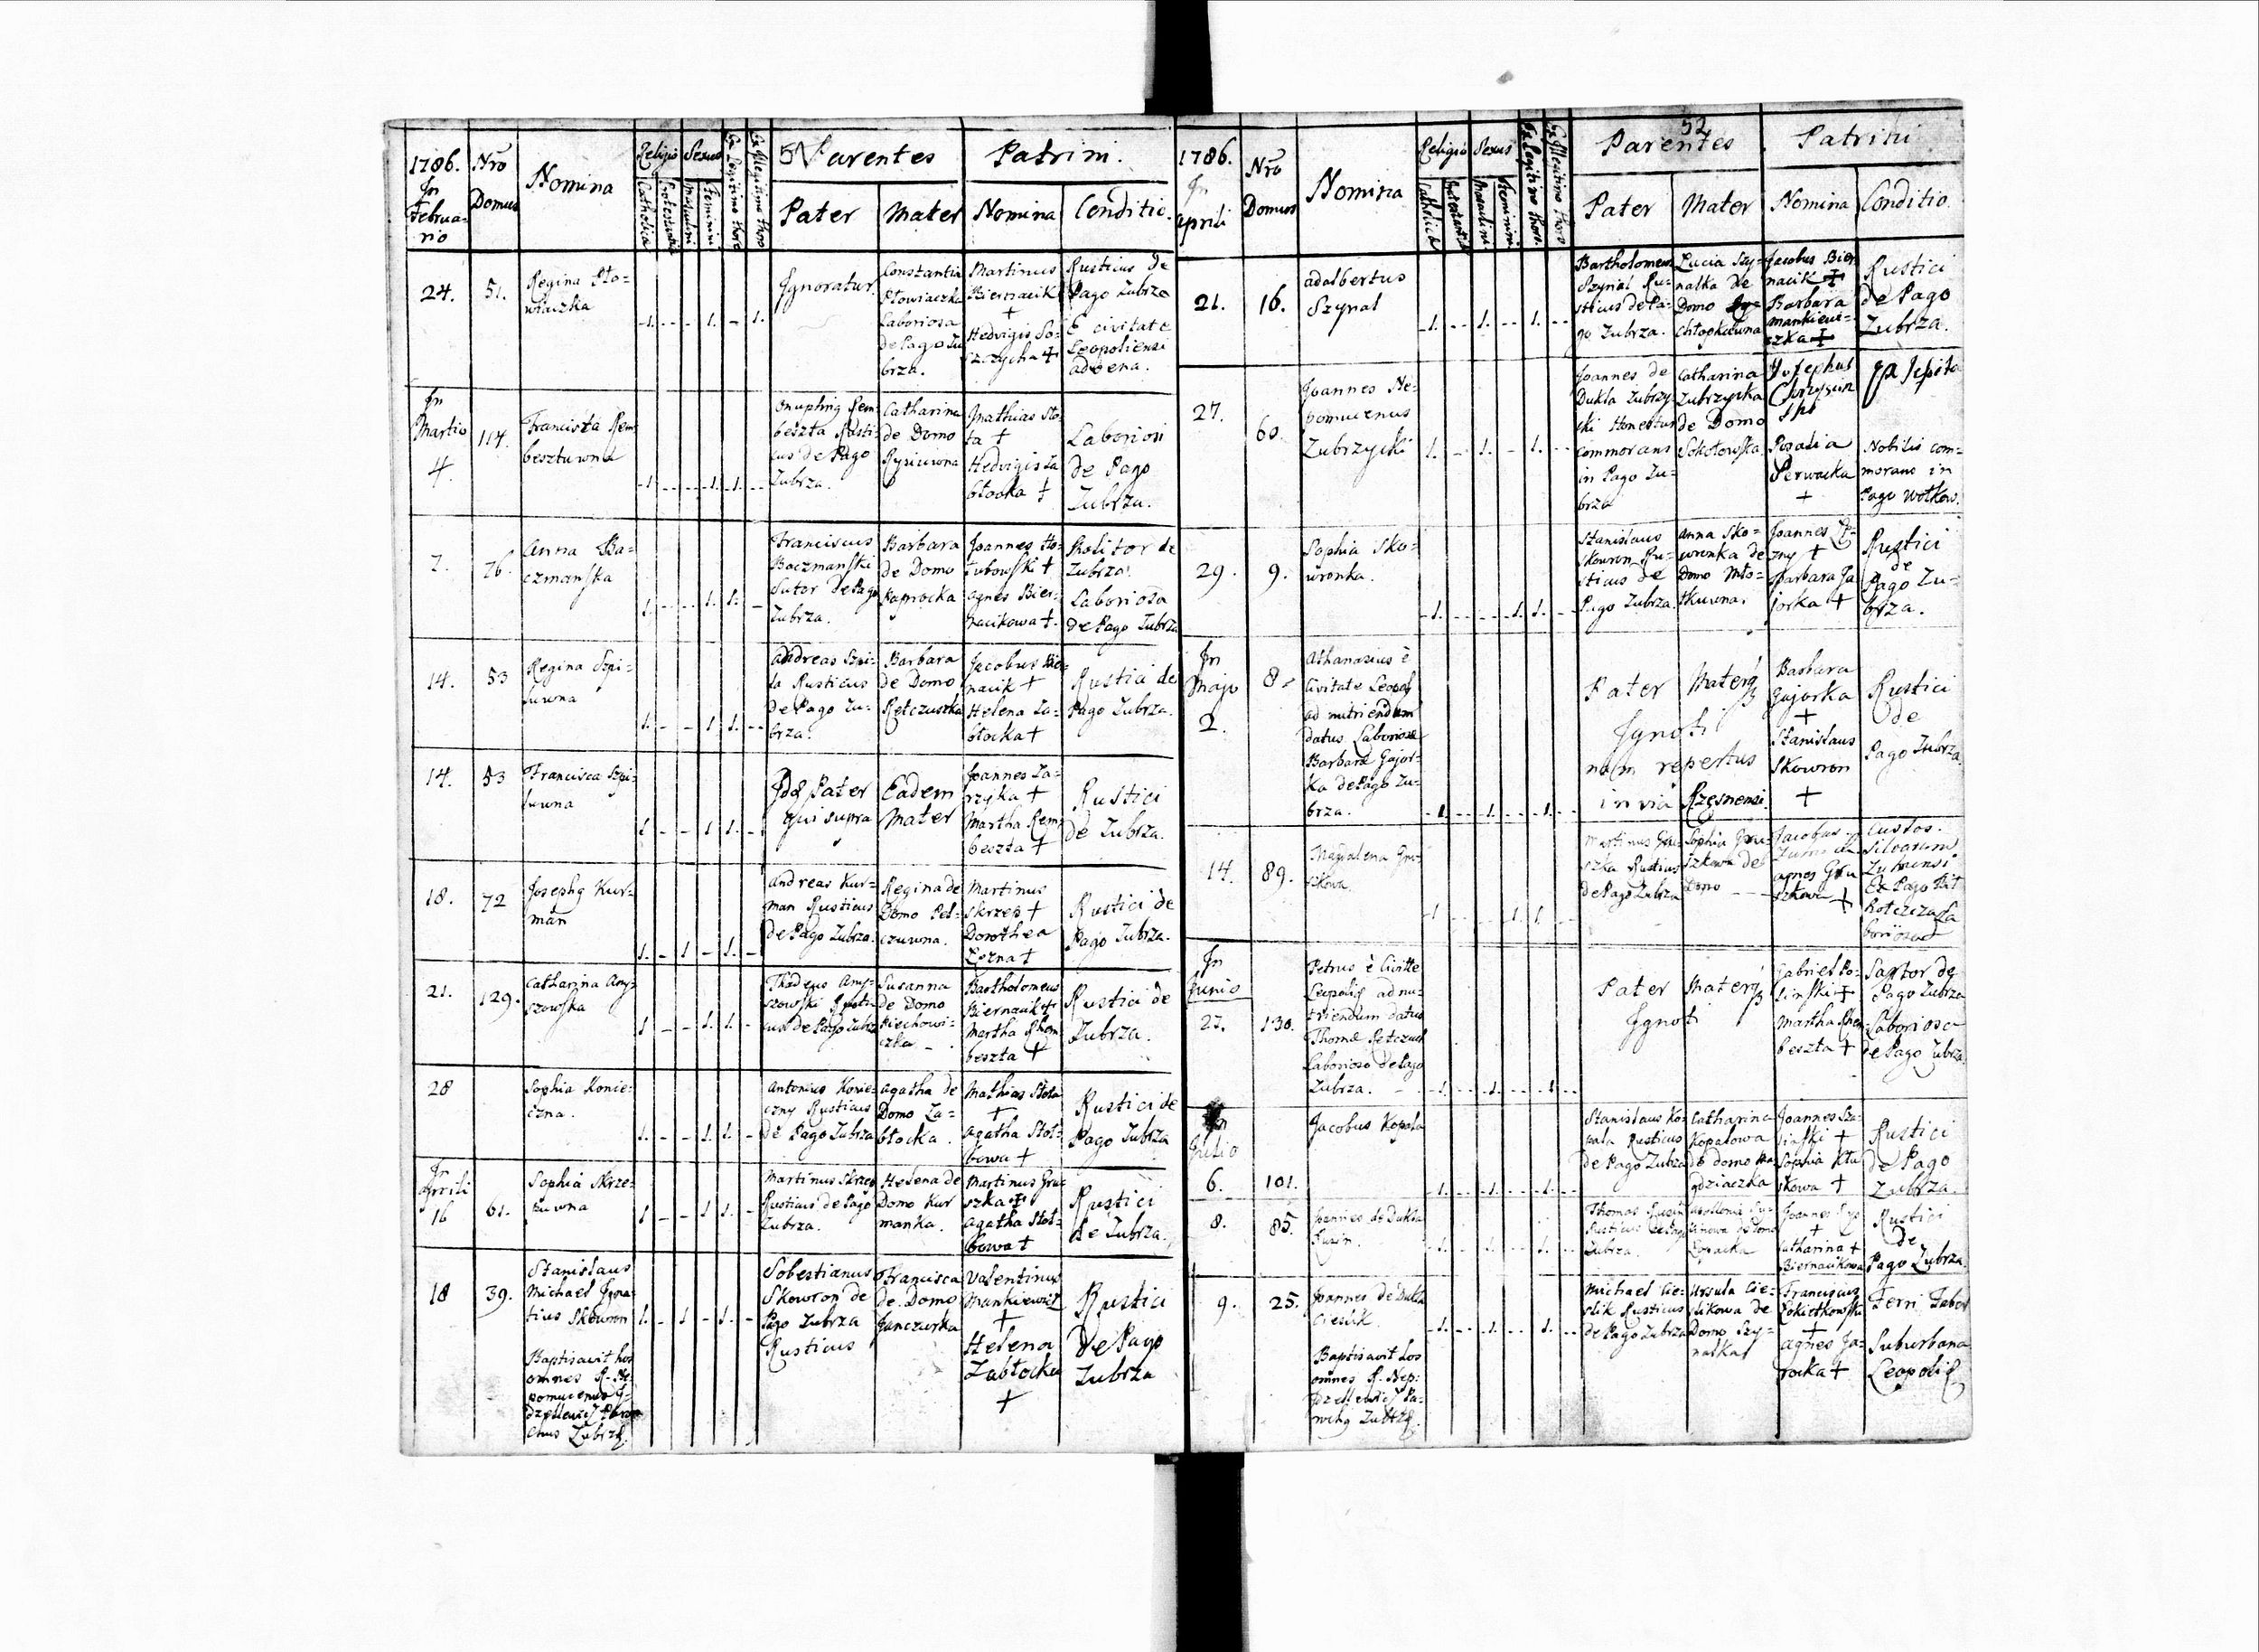 1786.
In
Februa-
rio
Nro
Domus
Nomina
Religio
Catholica
Protestantica
Sexus
Masculini
Feminini
Ex Legitimo thoro
Ex Illegitimo thoro
51
Parentes
Pater
Mater
Patrini.
Nomina
Conditio.
24.
51.
Regina Sło-
wiaczka
1. 1. 1.
Ignoratur.
Constantia
Słowiaczka
Laboriosa
de Pago Zu
brza.
Martinus
Biernacik
+
Hedvigis So-
czycha +
Rusticus de
Pago Zubrza
E civitate
Leopoliensi
advena.
In
Martio
4.
114.
Francista Rem
besztuwna
1. 1. 1.
Onuphrig Rem-
beszta Rusti-
cus de Pago
Zubrza.
Catharina
de Domo
Mathias Sto-
ta +
Hedvigis Za
błocka +
Laboriosi
de Pago
Zubrza.
7.
76.
Anna Ba-
czmanska
1. 1. 1.
Franciscus
Baczmanski
Sutor de Pago
Zubrza.
Barbara
de Domo
Paprocka
Joannes Ho-
łubowski +
Agnes Bier-
nacikowa +.
Molitor de
Zubrza.
Laboriosa
de Pago Zubrza
14.
53
Regina Szpi-
luwna
1. 1. 1.
Andreas Szpi-
la Rusticus
de Pago Zu-
brza.
Barbara
de Domo
Retczuszka
Jacobus Bie-
nacik +
Helena Za-
błocka +
Rustici de
Pago Zubrza.
14.
53
Francisca Szpi-
luwna
1 1 1.
Idg Pater
qui supra
Eadem
Mater
Joannes Za-
rzyka +
Martha Rem-
beszta +
Rustici
de Zubrza.
18.
72
Josephg Kur-
man
1. 1 1.
Andreas Kur-
man Rusticus
de Pago Zubrza.
Regina de
Domo Pel-
czuwna.
Martinus
Skrzep +
Dorothea
Łozna +
Rustici de
Pago Zubrza.
21.
129.
Catharina Amy-
szowska
1 1. 1.
Thadeus Amy-
szowski Rusti-
cus de Pago Zubrz
Susanna
de Domo
Piechowi-
czka - .
Bartholomeus
Biernacik +
Martha Rhem
beszta +
Rustici de
Zubrza.
28
Sophia Konie-
czna.
1. 1 1.
Antonius Konie-
czny Rusticus
de Pago Zubrza
Agatha de
Domo Za-
błocka.
Mathias Stota
+
Agatha Stot-
bowa +
Rustici de
Pago Zubrza
In
Aprili
16
61.
Sophia Skrze-
puwna
1 1 1.
Martinus Skrzep
Rusticus de Pago
Zubrza.
Helena de
Domo Kur
manka.
Martinus Gru-
szka +
Agatha Stot-
bowa +
Rustici
de Zubrza.
18
39.
Stanislaus
Michael Igna-
tius Skowron
1. 1 1.
Sobestianus
Skowron de
Pago Zubrza
Rusticus
Francisca
de Domo
Janczurka
Valentinus
Mankiewicz
+
Helena
Zabłocka
+
Rustici
de Pago
Zubrza
Baptisavit hos
omnes R. Ne-
pomucenus
Paro-
chus Zubrz.
1786.
In
Aprili
Nro
Domus
Nomina
Religio
Catholica
Protestantica
Sexus
Masculini
Feminini
Ex Legitimo thoro
Ex Illegitimo thoro
52
Parentes
Pater
Mater
Patrini
Nomina
Conditio
21.
16.
Adalbertus
Szynal
1. 1. 1.
Bartholomeus
Szynal Ru-
sticus de Pa-
go Zubrza.
Lucia Szy-
nalka de
Domo
Chłopkuwna
Jacobus Bier
nacik +
Barbara
Mankiewi-
czka +
Rustici
de Pago
Zubrza.
27.
60.
Joannes Ne-
pomucenus
Zubrzycki
1. 1. 1.
Joannes de
Dukla Zubrzy
cki Honestus
commorans
in Pago Zu-
brza
Catharina
Zubrzycka
de Domo
Sokołowska
Josephus
Rosalia
Perwacka
+
Nobilis com-
morans in
Pago Wołkow.
29.
9.
Sophia Sko-
wronka.
1. 1. 1.
Stanislaus
Skowron Ru-
sticus de
Pago Zubrza.
Anna Sko-
wronka de
Domo Mło-
tkuwna.
Joannes
zny +
Barbara Ga
jorka +
Rustici
de
Pago Zu-
brza.
In
Majo
2.
8.
Athanasius è
Civitate Leopol
ad nutriendum
datus Laboriosæ
Barbaræ Gajor-
ka de Pago Zu-
brza.
1. 1. 1.
Pater Materg
Ignoti
nam repertus
in via Rzęsnensi.
Barbara
Gajorka
+
Stanislaus
Skowron
+
Rustici
de
Pago Zubrza.
14.
89.
Magdalena Gru-
szkowa.
1 1 1.
Martinus Gru-
szka Rusticus
de Pago Zubrza
Sophia Gru-
szkowa de
Domo - -
Jacobus
Agnes Gru
szkowa +
Custos
Silvarum
Zubrensis
Ex Pago
La
boriosa
In
Junio
27.
130.
Petrus è Civitte
Leopolis ad nu-
triendum datus
Thomæ Retczuch
Laborioso de Pago
Zubrza.
1. 1. 1.
Pater Materg
Ignoti
Gabriel Po-
linski +
Martha Rhem-
beszta +
Sartor de
Pago Zubrza
Laboriosa
de Pago Zubrza.
In
Julio
6.
101.
Jacobus Kopala
1. 1. 1.
Stanislaus Ko-
pala Rusticus
de Pago Zubrza
Catharina
Kopalowa
de Domo Ma-
gdziaczka
Joannes Sza-
linski +
Sophia Klu
skowa +
Rustici
de Pago
Zubrza.
8.
85.
Joannes de Dukla
Rusin.
1. 1. 1.
Thomas Rusin
Rusticus de Pago
Zubrza.
Apollonia Ru-
sinowa de Domo
Joannes Rys
+
Catharina +
Biernacikowa
Rustici
de
Pago Zubrza.
9.
25.
Joannes de Dukla
Cieslik.
1. 1. 1.
Michael Cie-
slik Rusticus
de Pago Zubrza
Ursula Cie-
slikowa de
Domo Szy-
nalka
Franciscus
Łokietkowski
+
Agnes Ja-
rocka +
Ferri Faber
Suburbana
Leopolis
Baptisavit hos
omnes R. Nep:
Pa-
rochg Zubrz.